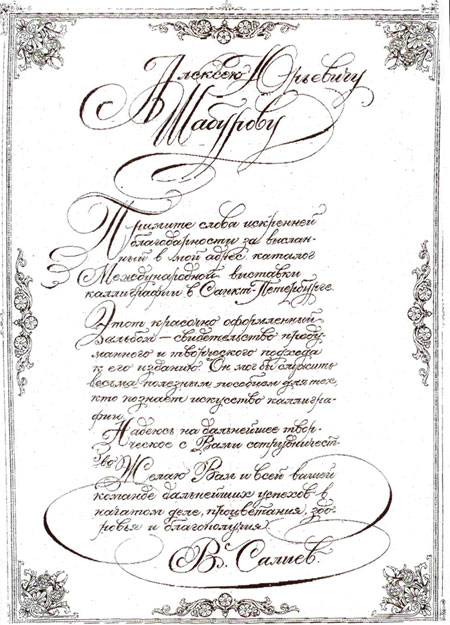 Алексею Юрьевичу
Шабурову
Примите слова искренней
благодарности за выслан-
ный в мой адрес каталог
Международной выставки
каллиграфии в Санкт-Петербурге.
Этот красочно оформленный
альбом — свидетельство проду-
манного и творческого подхода
к его изданию. Он мог бы служить
весьма полезным пособием для тех,
кто познает искусство каллигра-
фии.
Надеюсь на дальнейшее твор-
ческое с Вами сотрудничест-
во. Желаю Вам и всей вашей
команде дальнейших успехов в
начатом деле, процветания, здо-
ровья и благополучия.
Вс. Салиев.